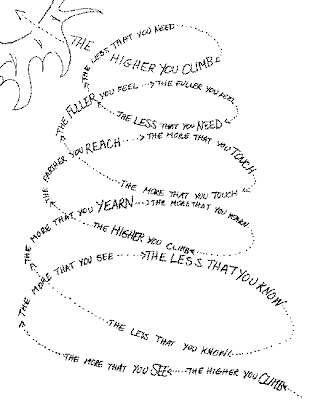 THE LESS THAT YOU NEED
THE HIGHER YOU CLIMB
THE FULLER YOU FEEL
THE FULLER YOU FEEL
THE LESS THAT YOU NEED
THE FARTHER YOU REACH
THE MORE THAT YOU TOUCH
THE MORE THAT YOU TOUCH
THE MORE THAT YOU YEARN
THE MORE THAT YOU YEARN
THE HIGHER YOU CLIMB
THE MORE THAT YOU SEE
THE LESS THAT YOU KNOW
THE LESS THAT YOU KNOW
THE MORE THAT YOU SEE
THE HIGHER YOU CLIMB